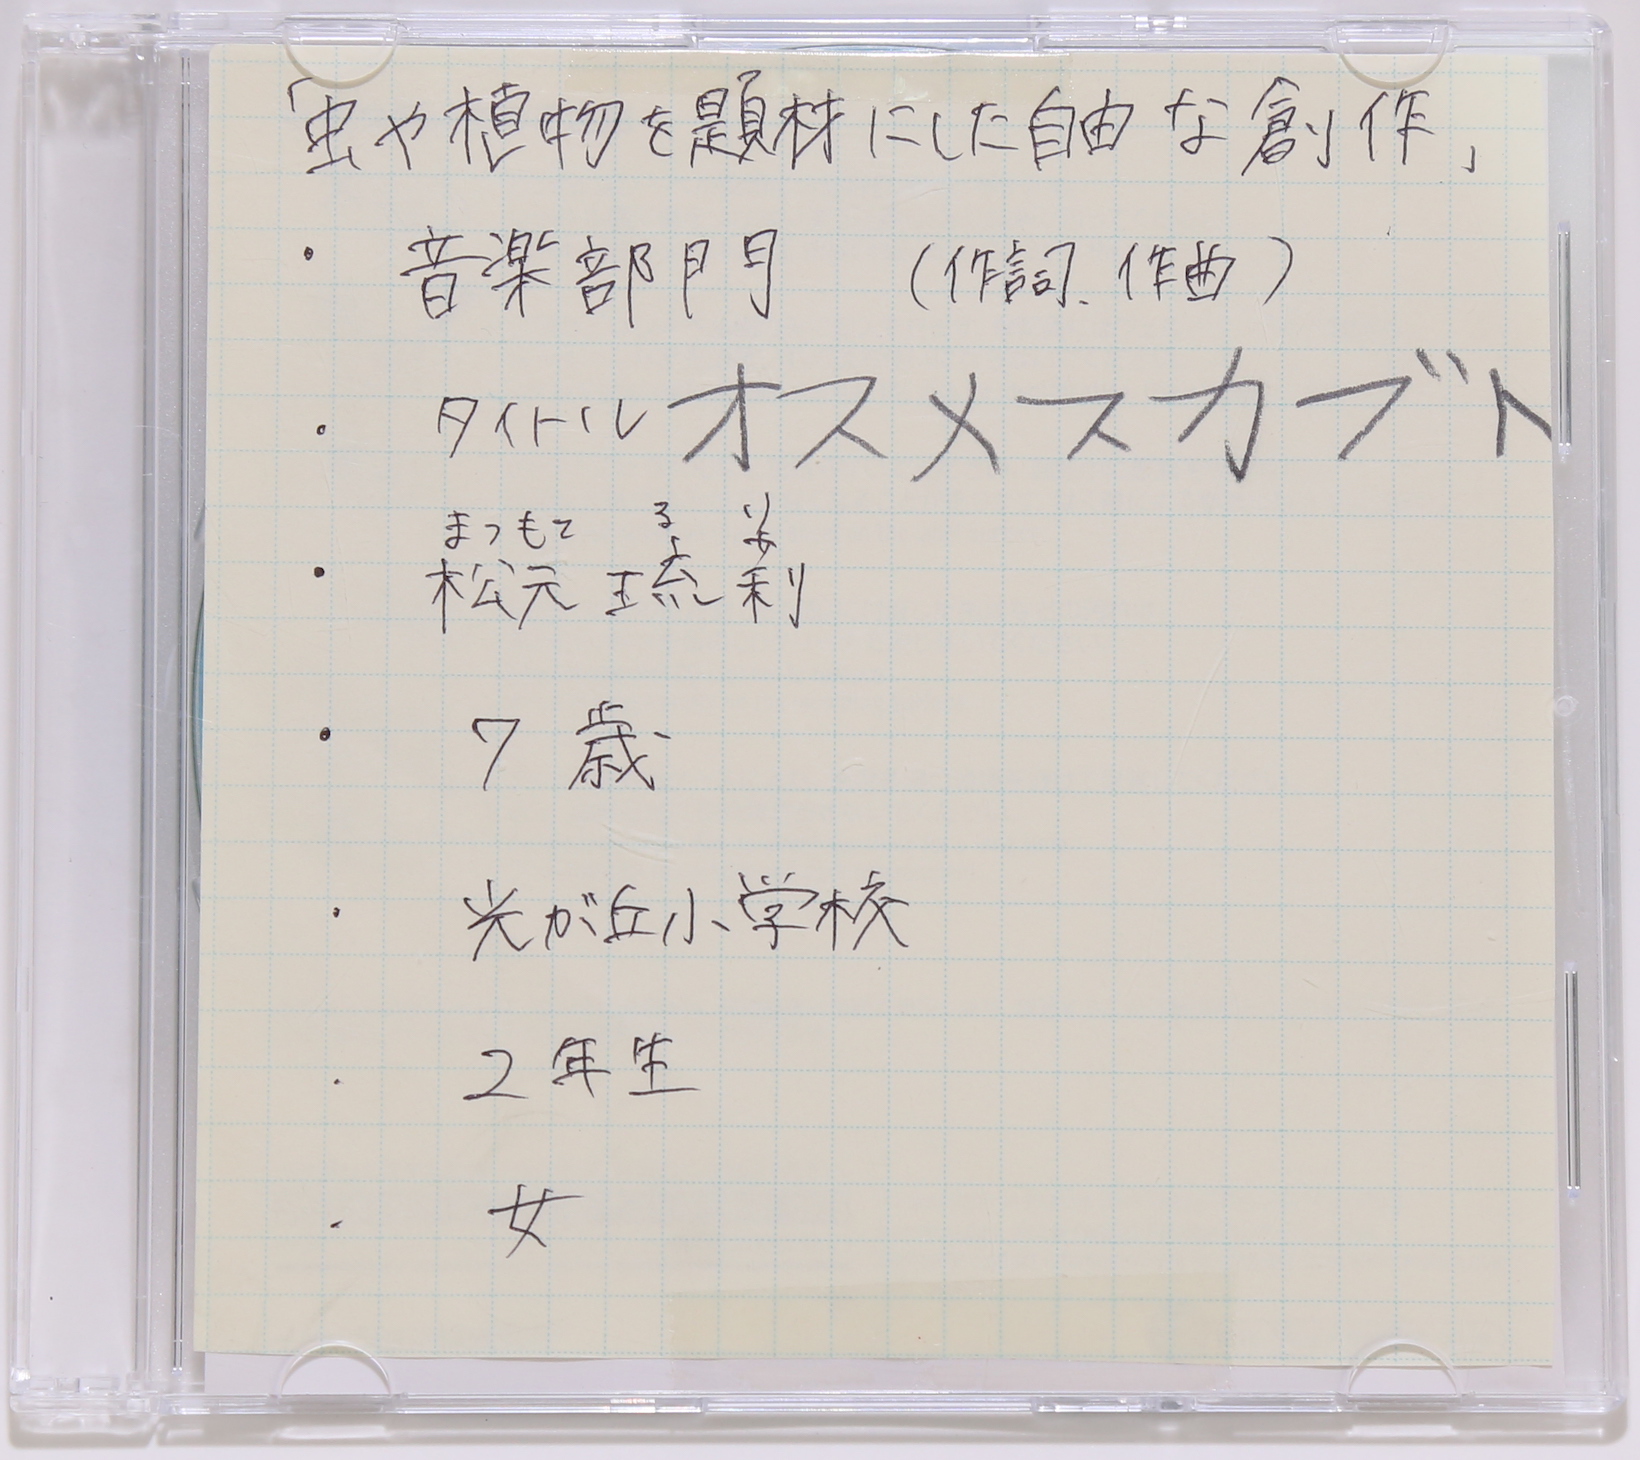 「虫や植物を題材にした自由な創作」
・ 音楽部門 (作詞、作曲)
・ タイトル オスメスカブト
まつもと る り
・ 松元 琉利
・ 7歳
・ 光が丘小学校
・ 2年生
・ 女